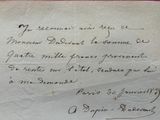 Je reconnais avoir reçu de
Monsieur Dudevant la somme de
quatre mille francs provenant
de rente sur l'état, vendues par lui
à ma demande
Paris 30 janvier
A Dupin - Dudevant